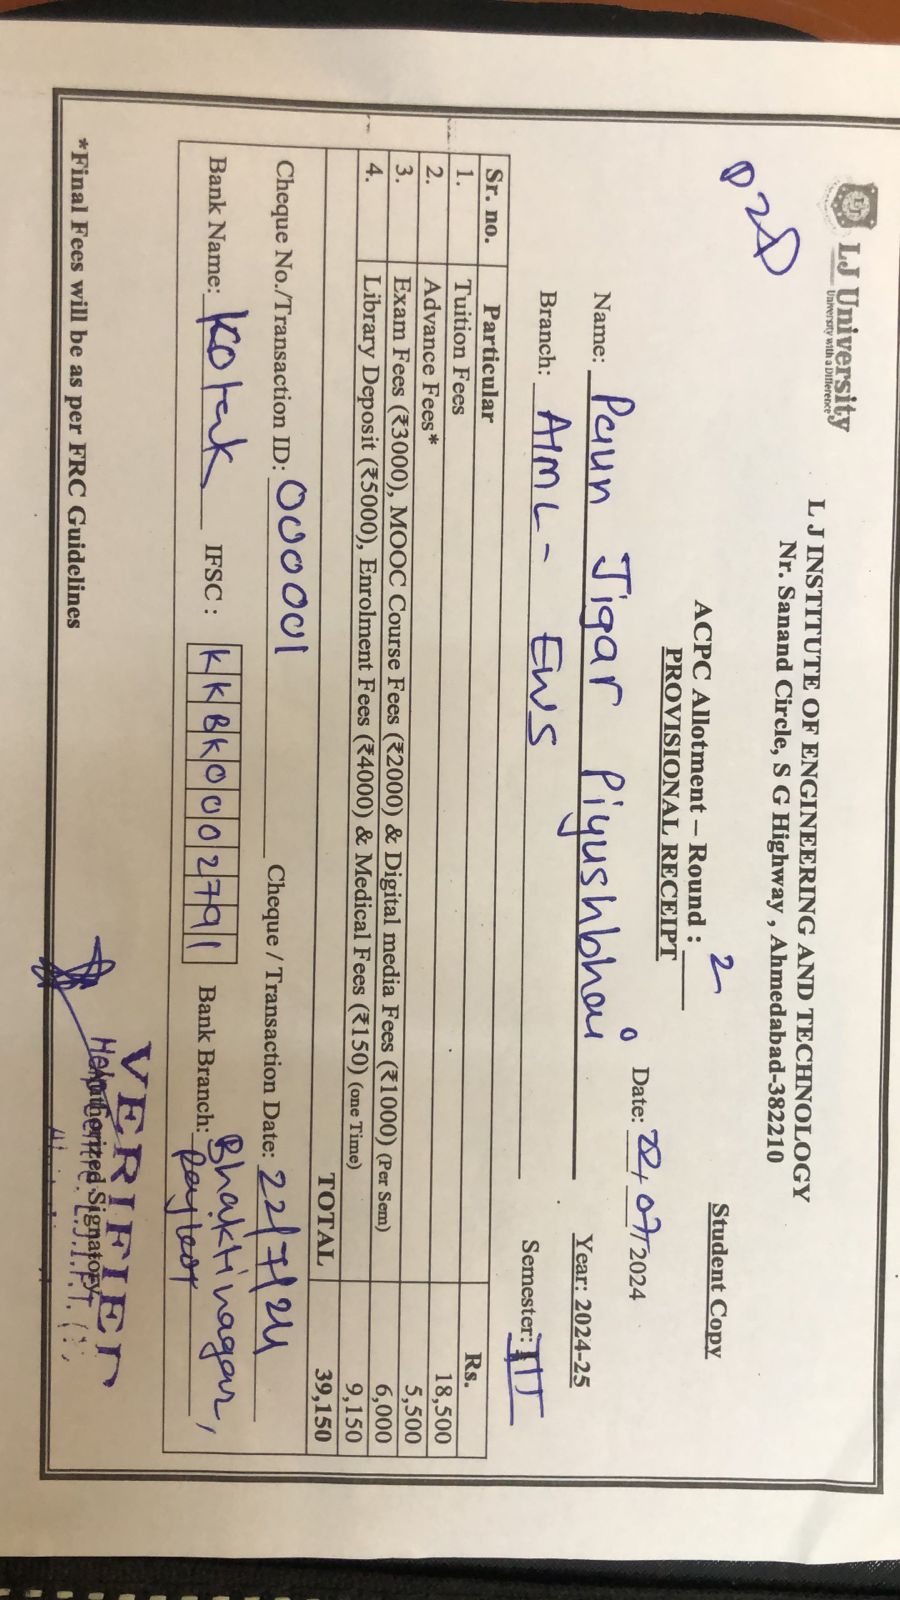 LJ University
University with a Difference
L J INSTITUTE OF ENGINEERING AND TECHNOLOGY
Nr. Sanand Circle, S G Highway , Ahmedabad-382210
D2D
Student Copy
ACPC Allotment – Round : 2
PROVISIONAL RECEIPT
Date: 22/07/2024
Name: Paun Jigar Piyushbhai
Year: 2024-25
Branch: AIML - EWS
Semester: III
Sr. no. Particular Rs.
1. Tuition Fees 18,500
2. Advance Fees* 5,500
3. Exam Fees (₹3000), MOOC Course Fees (₹2000) & Digital media Fees (₹1000) (Per Sem) 6,000
4. Library Deposit (₹5000), Enrolment Fees (₹4000) & Medical Fees (₹150) (one Time) 9,150
TOTAL 39,150
Cheque No./Transaction ID: 000001 Cheque / Transaction Date: 22/7/24
Bank Name: Kotak IFSC : KKBK0002791 Bank Branch: Bhaktinagar,
VERIFIED
Authorized Signatory
*Final Fees will be as per FRC Guidelines